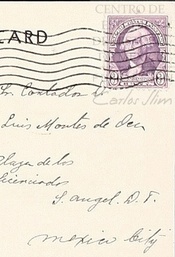 CENTRO DE
CARD
3
Carlos Slim
Sr. Contador
Luis Montes de Oca
Plaza de los
Licenciados
S. Angel, D. F.
Mexico City